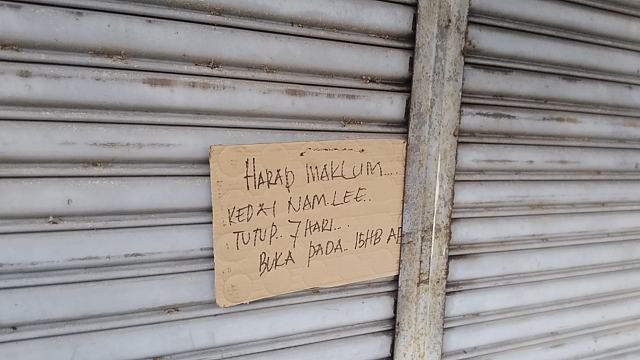 HARAP MAKLUM....
KEDAI NAM LEE.
TUTUP.. 7 HARI..
BUKA PADA.. 15HB